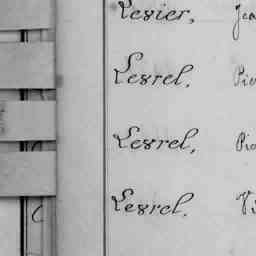 Lesier, Jea
Lesrel, Pie
Lesrel, Pie
Lesrel, Vi